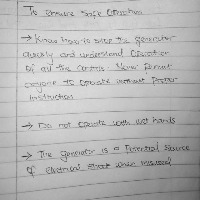 To ensure Safe Operation
→ Know How to stop the generator
quickly and understand Operation
of all the controls. Never Permit
anyone to Operate without Proper
Instructions
→ Do not operate with wet hands
→ The generator is a Potential Source
of electrical shock when misused